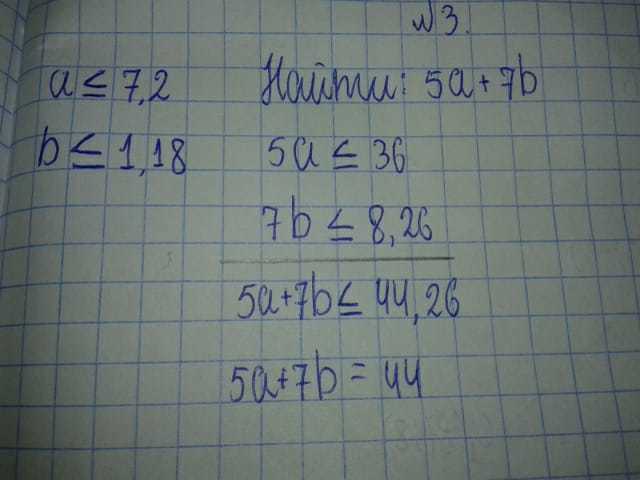 №3.
a ≤ 7,2 Найти: 5a + 7b
b ≤ 1,18 5a ≤ 36
7b ≤ 8,26
5a+7b ≤ 44,26
5a+7b = 44